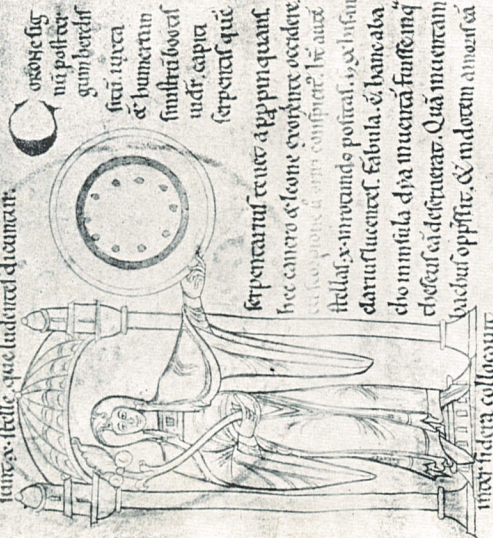 iunt .x. stelle, que ludentes dicuntur.
Corone sig
nũ poster
gum
sitũ. iuxta
& humerum
sinistrũ bootis
uidr. capita
serpentis quẽ
serpentarius tenet appropinquans
hec cancro & leone exoriente occidere.
cũ scorpione
stellas .x. in rotundo positas.
clarius lucentes. Fabula. &
cho in insula dya inuentã fuisse.
theseus eã deseruerat. Quã inuentam
bachus & in dotem amoris eã
inter sidera collocauit